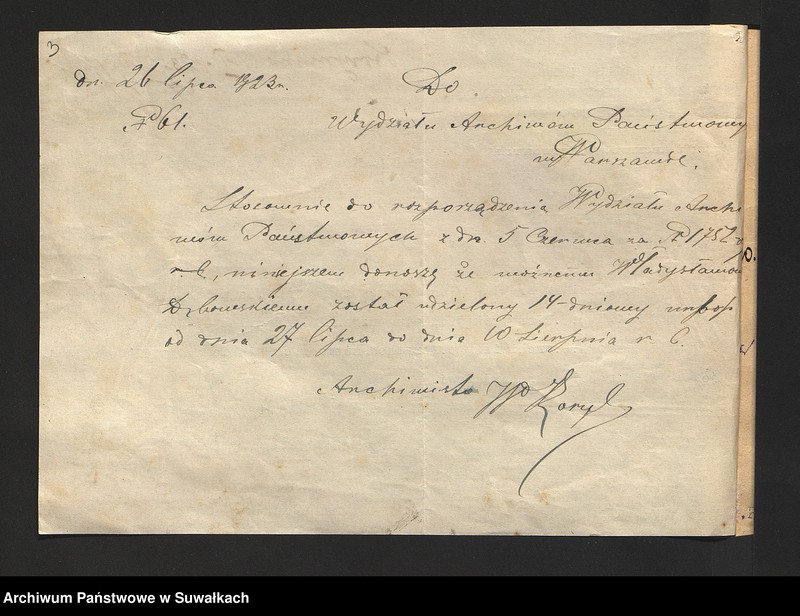 3
dn. 26 lipca 1923 r.
Do
№ 61.
Wydziału Archiwów Państwowy
w Warszawie.
Stosownie do rozporządzenia Wydziału Archi
wów Państwowych z dn. 5 Czerwca za № 1752
r. b., niniejszem donoszę że woźnemu Władysławow
Dębowskiemu został udzielony 14-dniowy urlop
od dnia 27 lipca do dnia 10 Sierpnia r. b.
Archiwista
Archiwum Państwowe w Suwałkach